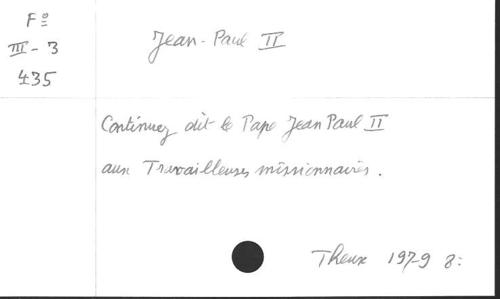 Fº
III - 3
435
Jean-Paul II
Continuez dit le Pape Jean Paul II
aux Travailleuses missionnaires.
Theux 1979 8º